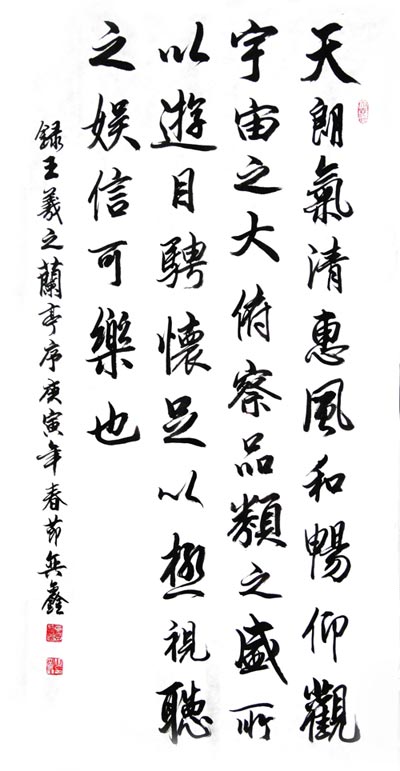 天朗氣清惠風和暢仰觀
宇宙之大俯察品類之盛所
以遊目騁懷足以極視聽
之娛信可樂也
録王羲之蘭亭序庚寅年春節兵鑫